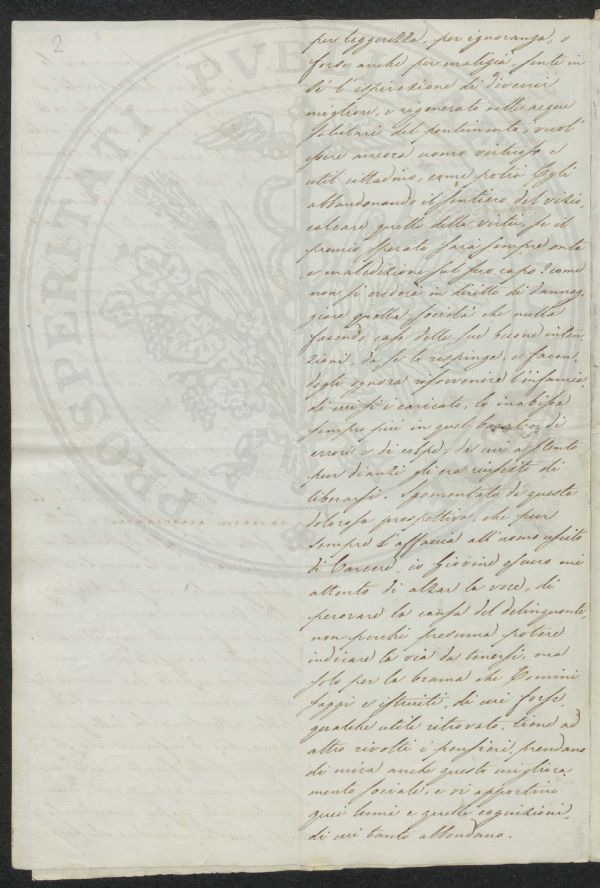 2
PROSPERITATI PVB
per leggerezza, per ignoranza, o
forse anche per malizia, sente in
sé l'ispirazione di divenir
migliore, e rigenerato nelle acque
salutari del pentimento, vuol
essere ancora uomo virtuoso e
util cittadino, come potrà Egli
abbandonando il sentiero del vizio,
calcare quello della virtù, se il
premio sperato sarà sempre onta
e maledizione sul suo capo? come
non si crederà in diritto di danneg
giare quella società che nulla
facendo caso delle sue buone inten
zioni, da se lo respinge, e facen
dogli ognora risovvenire l'infamia
di cui si è caricato, lo inabissa
sempre più in quel baratro di
errori e di colpe, da cui a stento
pur dianzi gli era riuscito di
liberarsi. Sgomentato da questa
dolorosa prospettiva, che pur
sempre s'affaccia all'uomo uscito
di Carcere, io Giovine oscuro mi
attento di alzar la voce, di
perorare la causa del delinquente,
non perché presuma potere
indicare la via da tenersi, ma
solo per la brama che Uomini
saggi e istruiti, di cui forse,
qualche utile ritrovato, tiene ad
altro rivolti i pensieri, prendano
di mira anche questo migliora
mento sociale, e vi apportino
quei lumi e quelle cognizioni,
di cui tanto abbondano.